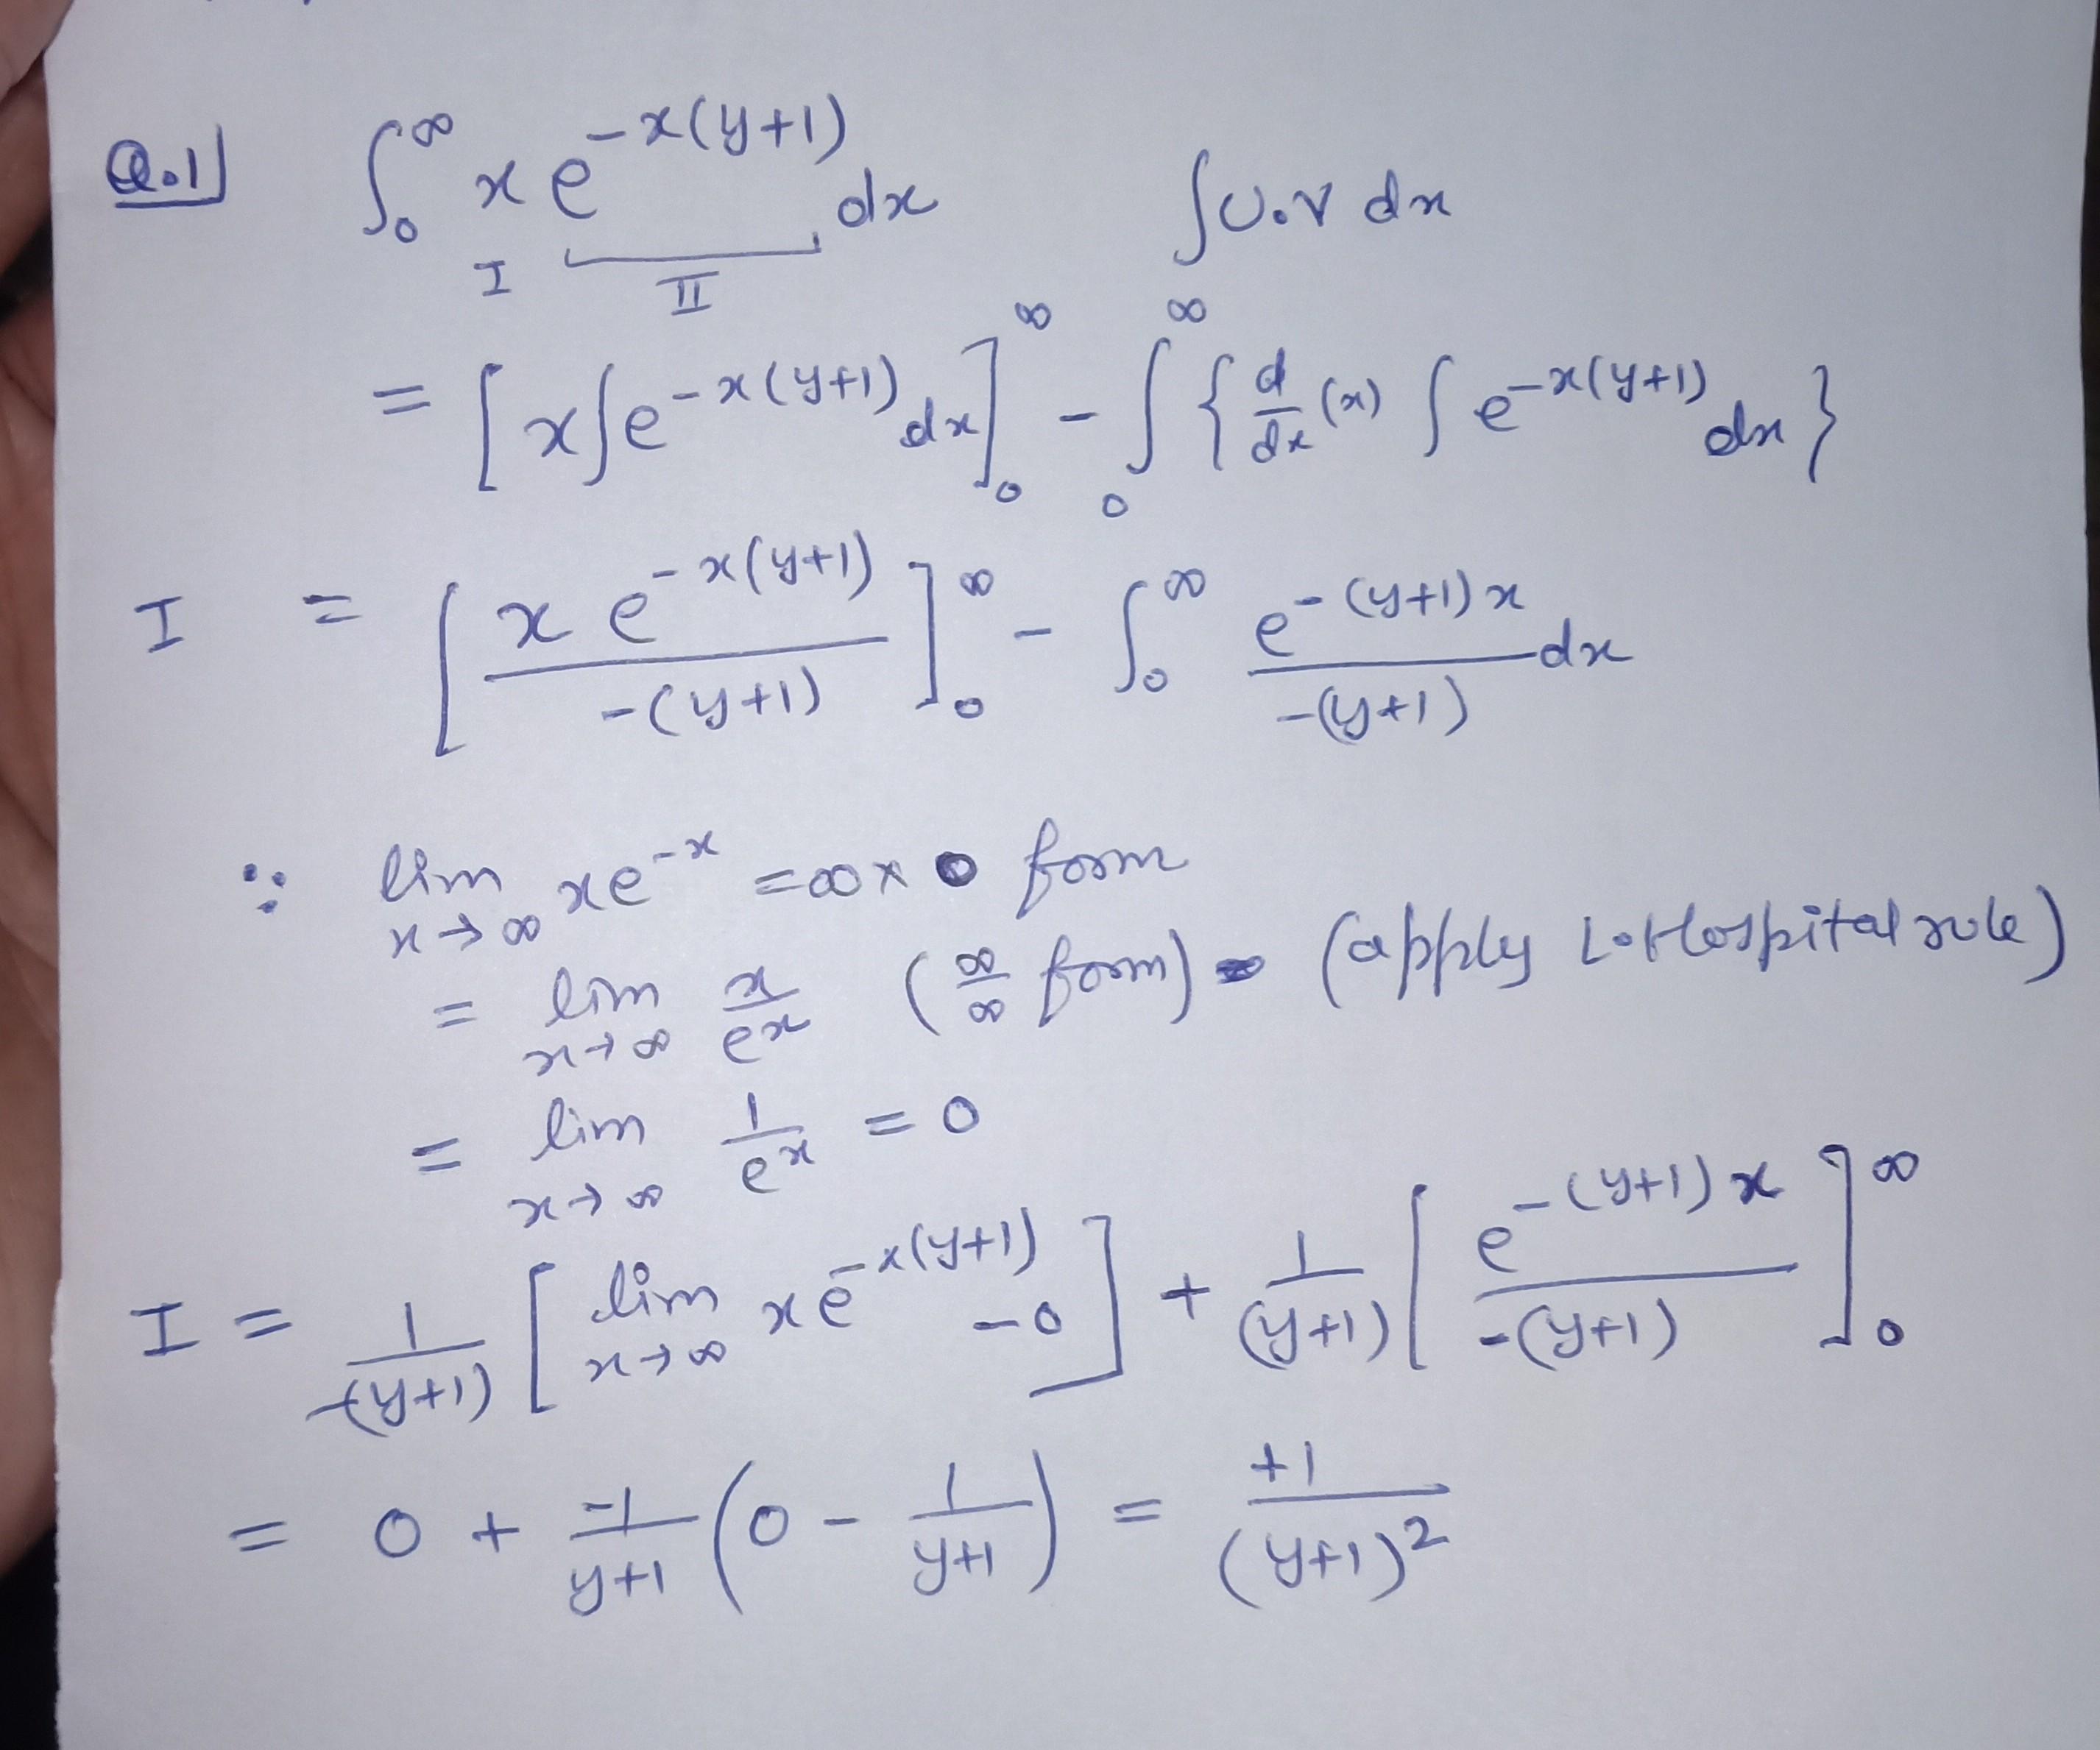 Q.1] ∫₀^∞ x e^{-x(y+1)} dx ∫U.V dx
I II
= [x∫e^{-x(y+1)} dx]₀^∞ - ∫₀^∞ {d/dx (x) ∫e^{-x(y+1)} dx}
I = [x e^{-x(y+1)} / -(y+1)]₀^∞ - ∫₀^∞ e^{-(y+1)x} / -(y+1) dx
∵ lim_{x→∞} xe^{-x} = ∞ × 0 form
= lim_{x→∞} x/e^x (∞/∞ form) (apply L-Hospital rule)
= lim_{x→∞} 1/e^x = 0
I = 1/-(y+1) [lim_{x→∞} xe^{-x(y+1)} - 0] + 1/(y+1) [e^{-(y+1)x} / -(y+1)]₀^∞
= 0 + -1/y+1 (0 - 1/y+1) = +1/(y+1)²